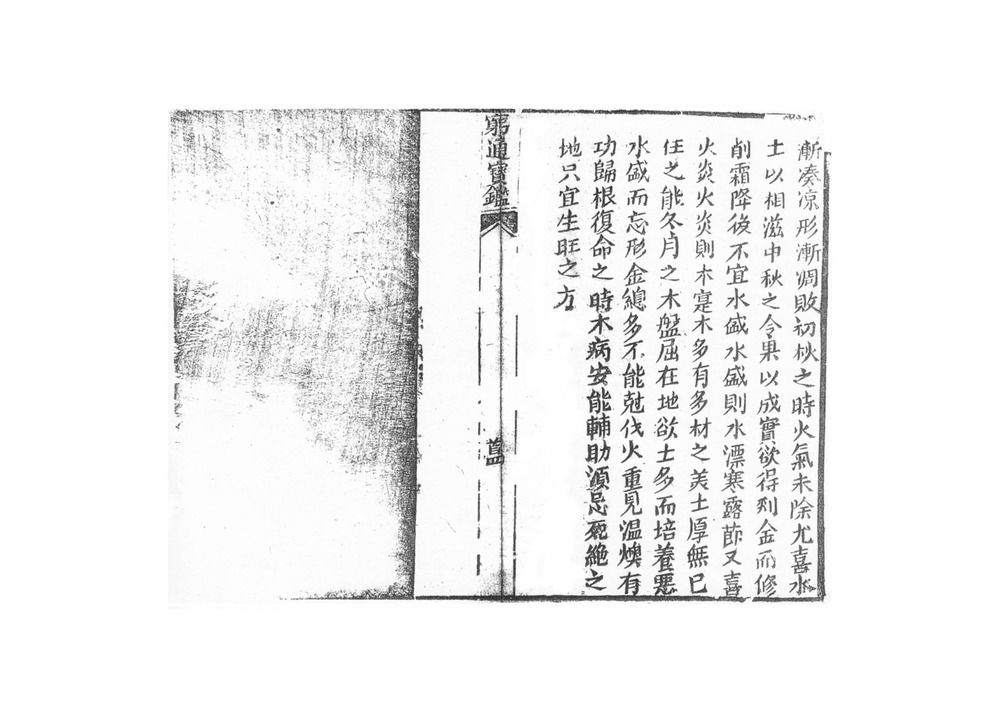 漸凄凉形漸凋敗初秋之時火氣未除尤喜水
土以相滋中秋之令果以成實欲得剛金而修
削霜降後不宜水盛水盛則水漂寒露節又喜
火炎火炎則木寔木多有多材之美土厚無已
任之能冬月之木盤屈在地欲土多而培養惡
水盛而忘形金總多不能尅伐火重見温燠有
功歸根復命之時木病安能輔助須忌死絶之
地只宜生旺之方
窮通寶鑑